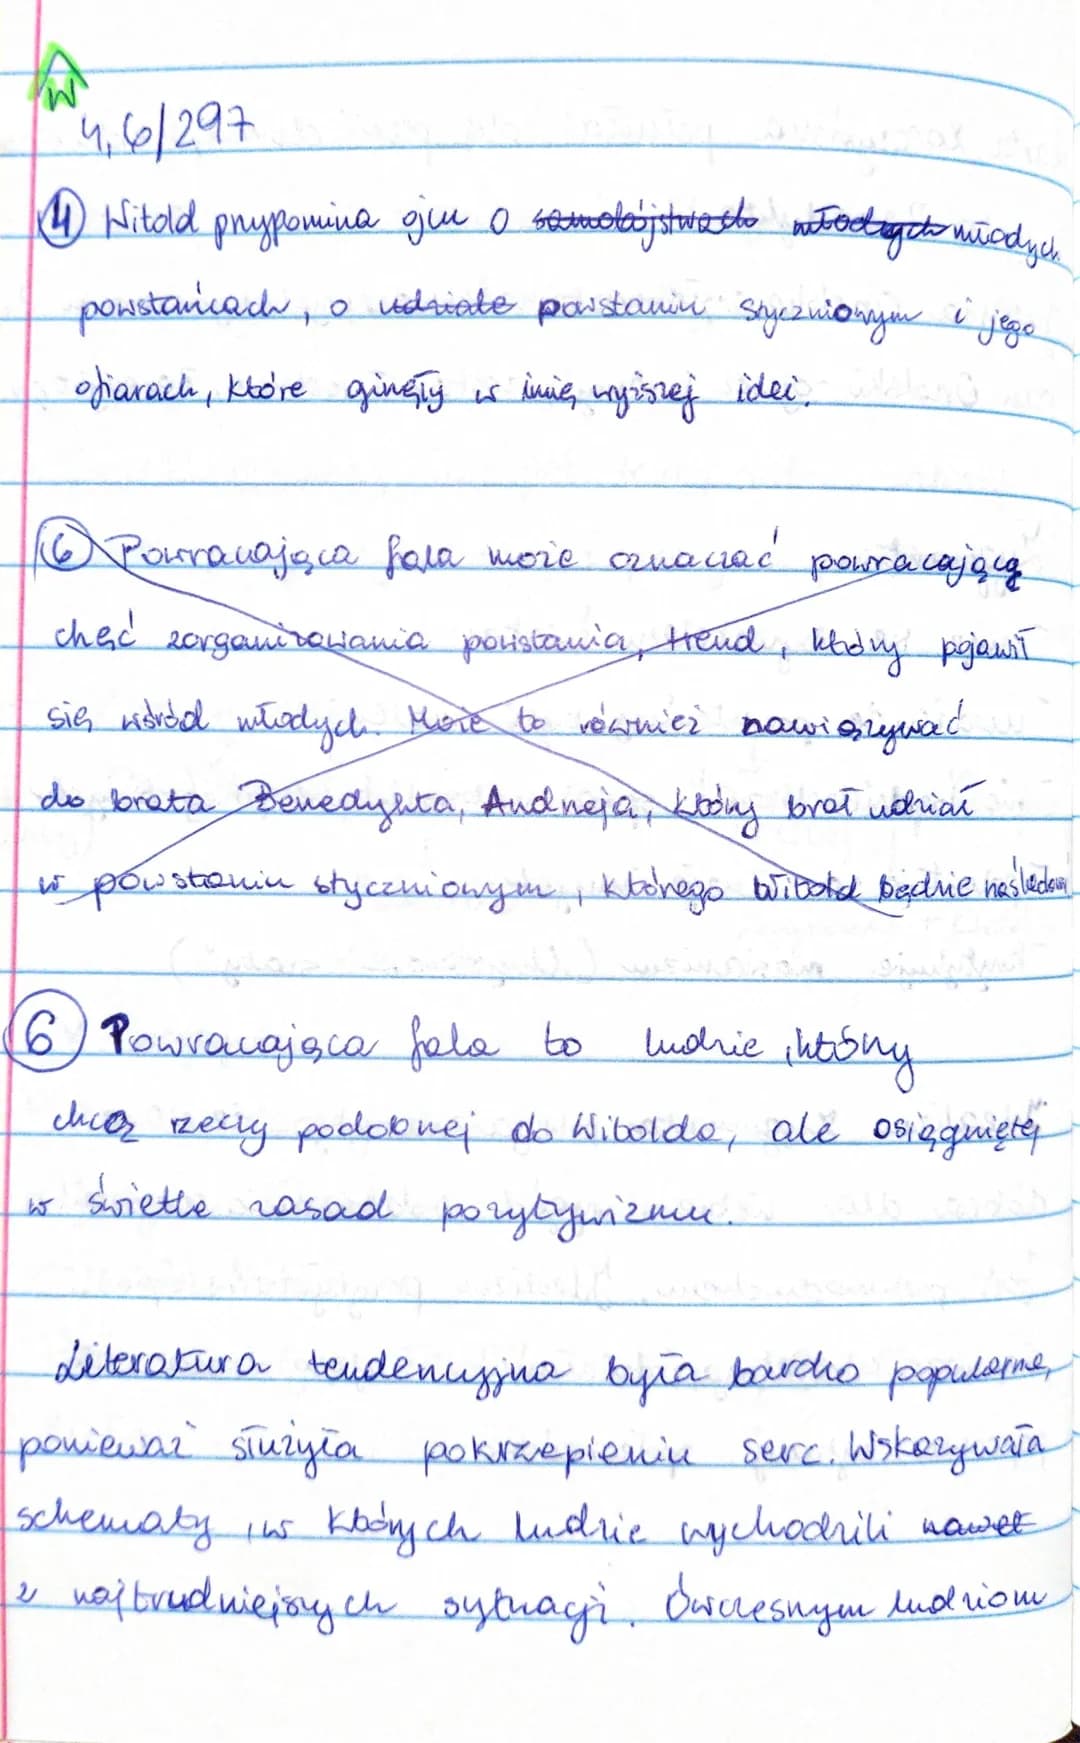 W
4,6/297
4 Witold przypomina ojcu o samobójstwach młodych młodych
powstańcach, o udziale powstaniu styczniowym i jego
ofiarach, które ginęły w imię wyższej idei.
6 Powracająca fala może oznaczać powracającą
chęć zorganizowania powstania, trend, który pojawił
się wśród młodych. Może to również nawiązywać
do brata Benedykta, Andrzeja, który brał udział
w powstaniu styczniowym, którego Witold będzie naśladow
6 Powracająca fala to ludzie, którzy
chcą rzeczy podobnej do Witolda, ale osiągniętej
w świetle zasad pozytywizmu.
Literatura tendencyjna była bardzo popularna,
ponieważ służyła pokrzepieniu serc. Wskazywała
schematy, w których ludzie wychodzili nawet
z najtrudniejszych sytuacji. Ówczesnym ludziom